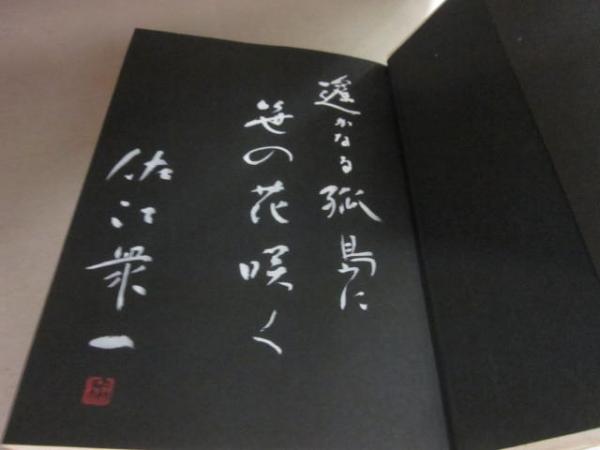 遥かなる孤島に
笹の花咲く
佐江衆一